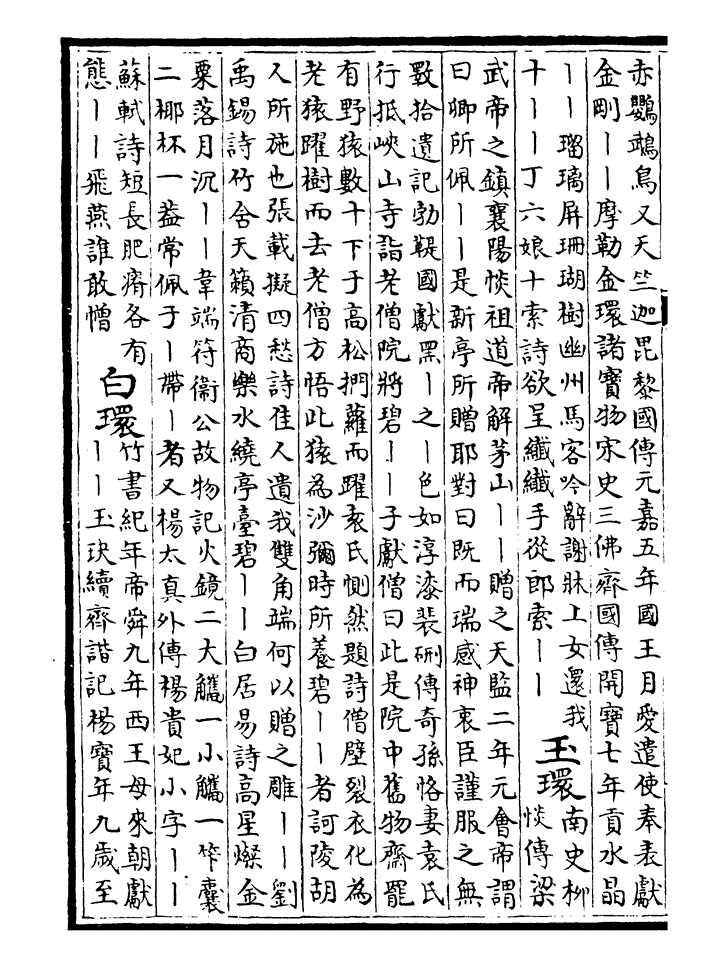 赤鸚鵡鳥又天竺迦毘黎國傳元嘉五年國王月愛遣使奉表獻
金剛——摩勒金環諸寶物宋史三佛齊國傳開寶七年貢水晶
——瑠璃屏珊瑚樹幽州馬客吟辭謝牀上女還我
十———丁六娘十索詩欲呈纖纖手從郎索——
玉環
南史柳
惔傳梁
武帝之鎮襄陽惔祖道帝解茅山——贈之天監二年元會帝謂
曰卿所佩——是新亭所贈耶對曰既而瑞感神衷臣謹服之無
斁拾遺記勃鞮國獻黑—之—色如淳漆裴硎傳奇孫恪妻袁氏
行抵峽山寺詣老僧院將碧——子獻僧曰此是院中舊物齋罷
有野猿數十下于高松捫蘿而躍袁氏惻然題詩僧壁裂衣化為
老猿躍樹而去老僧方悟此猿為沙彌時所養碧——者訶陵胡
人所施也張載擬四愁詩佳人遺我雙角端何以贈之雕——劉
禹錫詩竹含天籟清商樂水繞亭臺碧——白居易詩高星燦金
粟落月沉——韋端符衛公故物記火鏡二大觿一小觿一笇囊
二椰杯一葢常佩于—帶—者又楊太真外傳楊貴妃小字——
蘇軾詩短長肥瘠各有
態——飛燕誰敢憎
白環
竹書紀年帝舜九年西王母來朝獻
——玉玦續齊諧記楊寶年九歲至